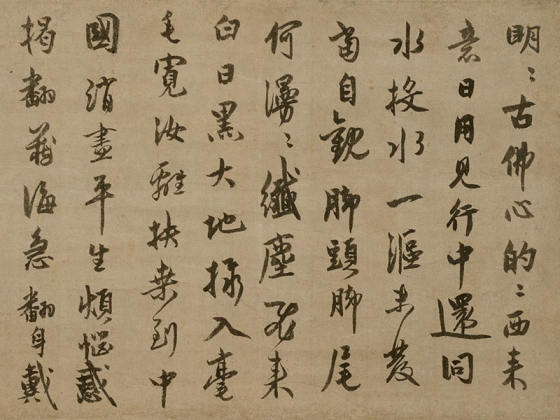 明〻古佛心的〻西来
意日用見行中還同
水投水一漚未發
當自觀脚頭脚尾
何漫〻纖塵飛来
白日黑大地入毫
毛寛汝離扶桑到中
國消盡平生煩惱惑
掲翻蔵海急翻身戴